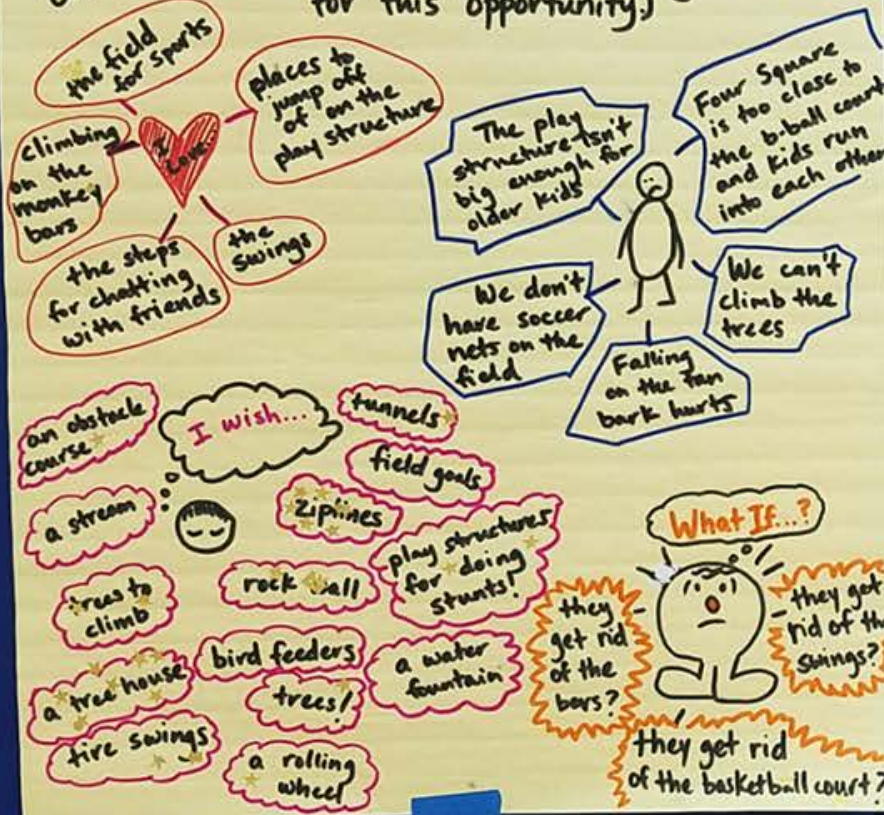 for this opportunity,
the field
for sports
places to
jump off
of on the
play structure
climbing
on the
monkey
bars
I
Love
the steps
for chatting
with friends
the
swings
The play
structure isn't
big enough for
older kids
Four Square
is too close to
the b-ball court
and kids run
into each other
We don't
have soccer
nets on the
field
We can't
climb the
trees
Falling
on the tan
bark hurts
I wish...
an obstacle
course
tunnels
field goals
a stream
ziplines
play structures
for doing
stunts!
trees to
climb
rock wall
bird feeders
a water
fountain
a tree house
trees!
tire swings
a rolling
wheel
What If...?
they
get rid
of the
bars?
they get
rid of the
swings?
they get rid
of the basketball court?